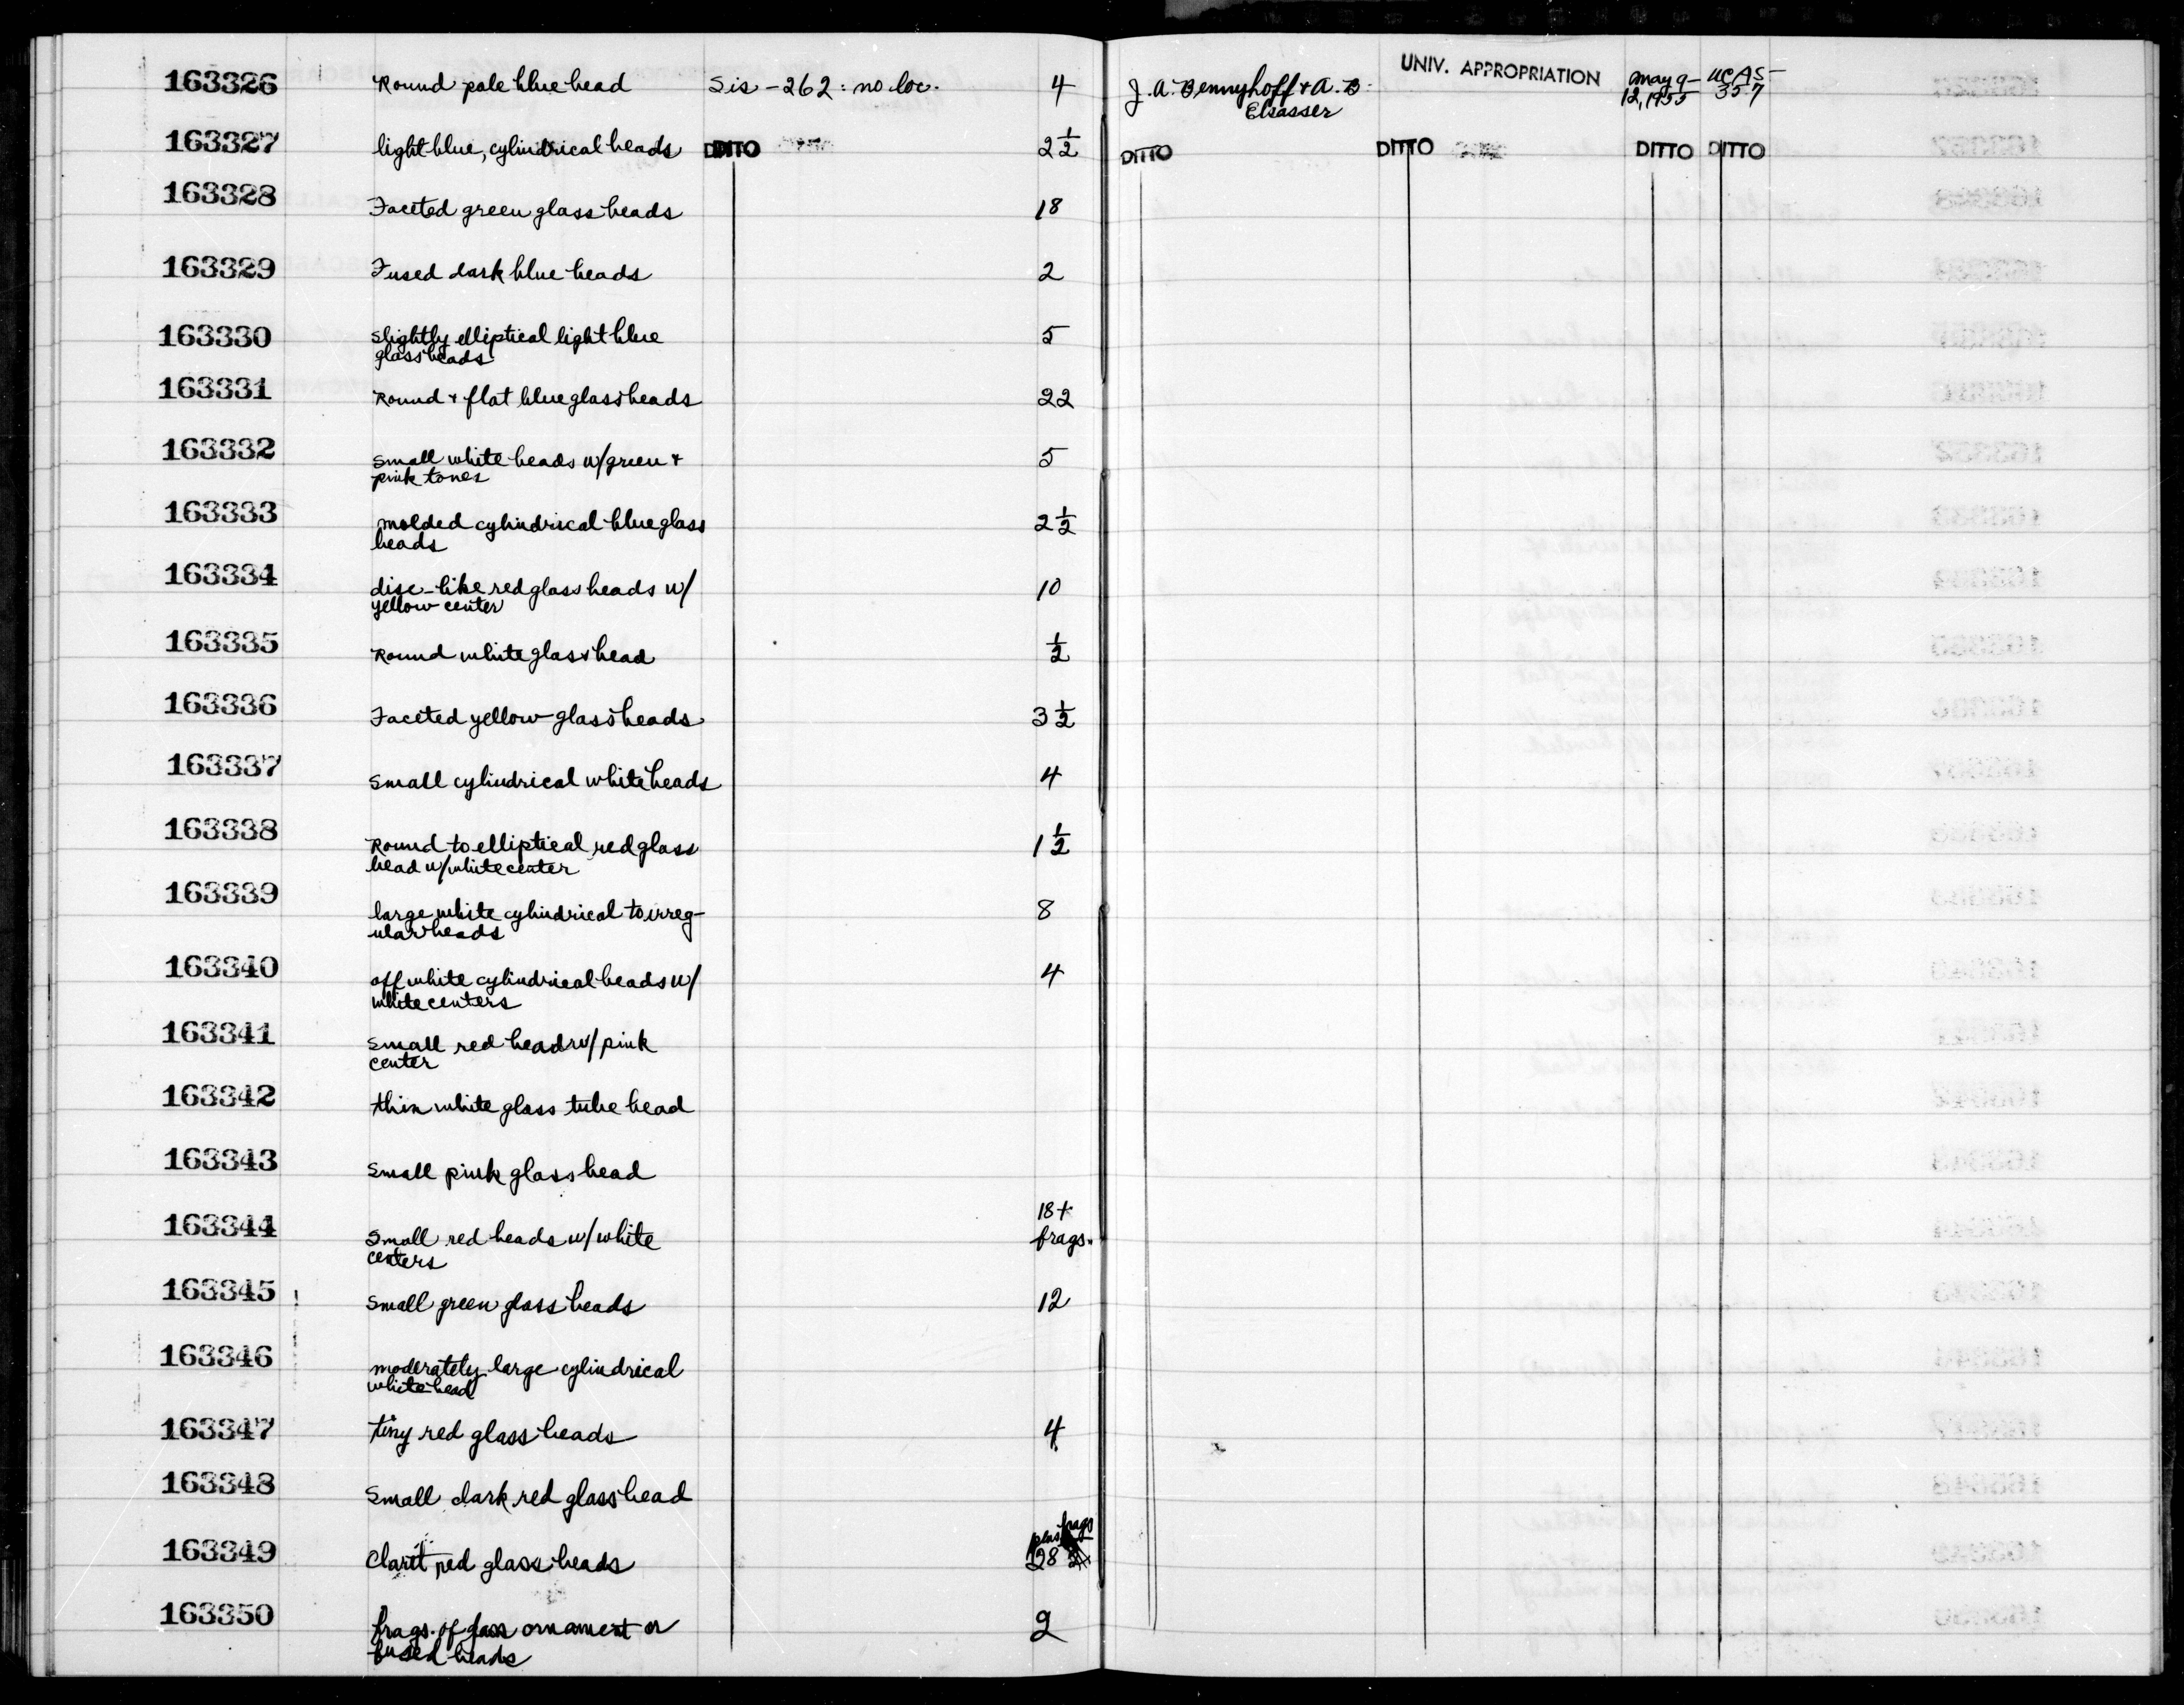 163326 Round pale blue bead Sis-262: no loc. 4 J.A. Bennyhoff & A.B. Elsasser UNIV. APPROPRIATION May 9-12, 1955 UCAS-357
163327 light blue, cylindrical beads DITTO 2 1/2 DITTO DITTO DITTO DITTO
163328 Faceted green glass beads 18
163329 Fused dark blue beads 2
163330 Slightly elliptical light blue
glass beads 5
163331 Round + flat blue glass beads 22
163332 Small white beads w/green +
pink tones 5
163333 molded cylindrical blue glass
beads 2 1/2
163334 disc-like red glass beads w/
yellow center 10
163335 Round white glass bead 1/2
163336 Faceted yellow glass beads 3 1/2
163337 Small cylindrical white beads 4
163338 Round to elliptical red glass
bead w/white center 1 1/2
163339 large white cylindrical to irreg-
ular beads 8
163340 off white cylindrical beads w/
white centers 4
163341 Small red bead w/ pink
center
163342 thin white glass tube bead
163343 Small pink glass bead
163344 Small red beads w/ white
centers 18+
frags.
163345 Small green glass beads 12
163346 moderately large cylindrical
white bead
163347 tiny red glass beads 4
163348 Small dark red glass bead
163349 Claret red glass beads 28 plus frags
163350 frags. of glass ornament or
fused beads 2